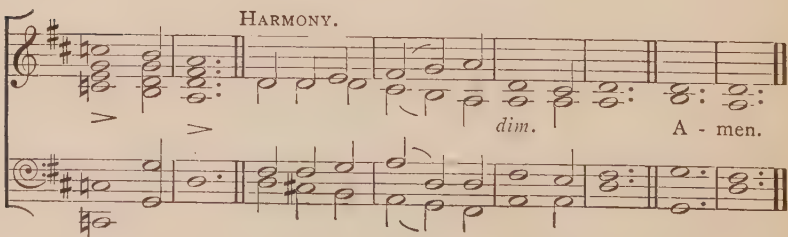 HARMONY.
dim.
A - men.